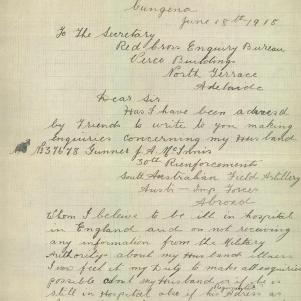 Cungena
June 18th 1918
To the Secretary
Red Cross Enquiry Bureau
Verco Building
North Terrace
Adelaide
Dear Sir
Has I have been adviesed
by Friends to write to you making
enquiries concerning my Husband
Gunner J. A. McInnis
30th Rienforcements
South Australian Field Artillery
Austr - Imp Forces
Abroad
Whom I beleive to be ill in hospital
in England and on not receiving
any information from the Military
Authority about my Husbands illness
I now feel it my Duty to make all enquiries
possible about my Husband if he is
still in Hospital also if his Adress as